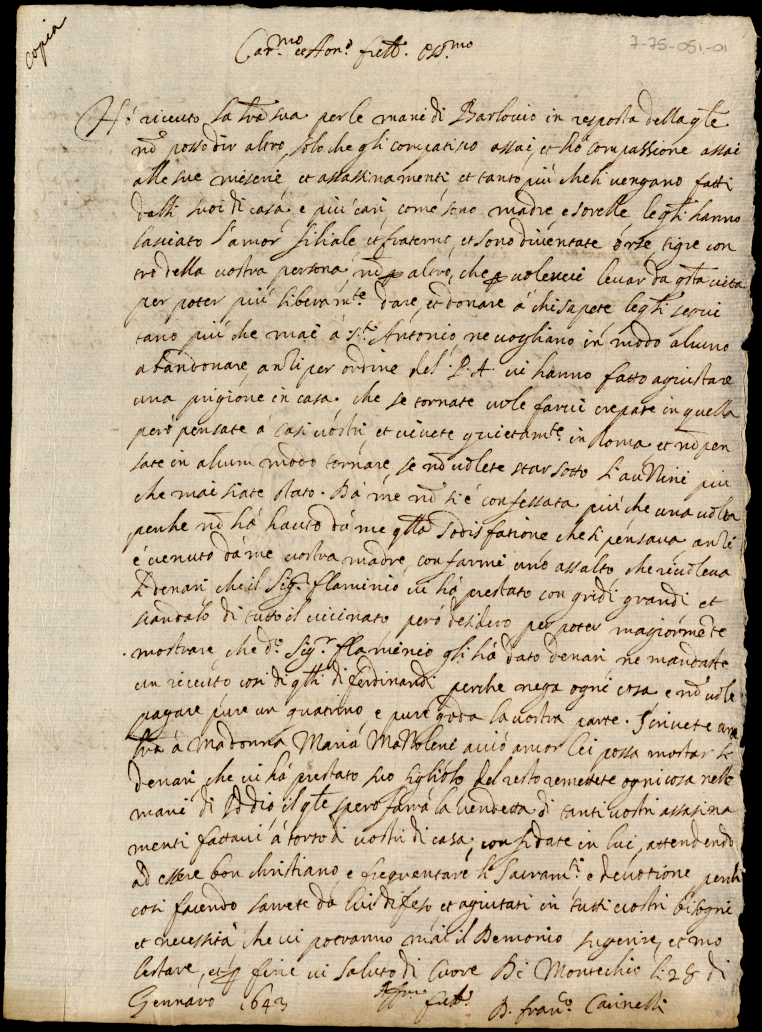 copia
7-75-051-01
Car.mo et Hon.do frett. oss.mo
Hò riceuto la tra sua per le mane di Barlouio in resposta della qle
nō posso dir altro, solo che gli compatisco assai, et hō compassione assai
alle sue miserie, et assassinamenti, et tanto più che li vengano fatti
dalli suoi di casa, e più cari, come sono madre, e sorelle, leqli hanno
lasciato l'amor filiale, et fraterno, et sono diuentate orse, tigre con
tro della vostra persona, nō p altro, che p volerui leuar da qsta vita
per poter più liberam.te dare, et donare à chi sapete leqli segui
tano più che mai à S.to Antonio, ne vogliano in modo alcuno
abandonare, anzi per ordine del P. A. vi hanno fatto agiustare
una prigione in casa, che se tornate vole farui crepare in quella
però pensate à casi vostri, et viuete quietam.te in Roma, et nō pen
sate in alcun modo tornare, se nō volete star sotto più
che mai siate stato. Da me nō si è confessata più che una volta
perche nō hà hauto da me qlla sodisfatione che si pensaua anzi
è venuto da me vostra madre, con farmi uno assalto che riuoleua
li denari che il Sig.r Flaminio vi hà prestato con gridi grandi, et
scandalo di tutto il vicinato però desidero per poter magiormēte
mostrare, che d.o Sig.r Flaminio gli hà dato denari ne mandate
un riceuto così di qlli di Ferdinandi, perche nega ogni cosa, e nō vole
pagare pure un quatrino, e pure goda la vostra parte. Scriuete una
tra à Madonna Maria Mazzoleni acciò ancor lei possa mostar li
denari che vi hà prestato suo figliolo, del resto remettete ogni cosa nelle
mani di Iddio, il qle spero farrà la vendetta di tanti vostri assasina
menti fattaui à torto di vostri di casa, confidate in lui, attendendo
ad essere bon christiano, e frequentare li Sacram.ti e deuotione, perche
così facendo sarrete da lui difeso, et agiutati in tutti vostri bisogni
et necessità che vi potranno mai il Demonio sugerire, et mo
lestare, et p fine vi saluto di cuore Di Montechio li 28 di
Gennaro 1643 Aff.mo frett.
D. Fran.co Carinelli